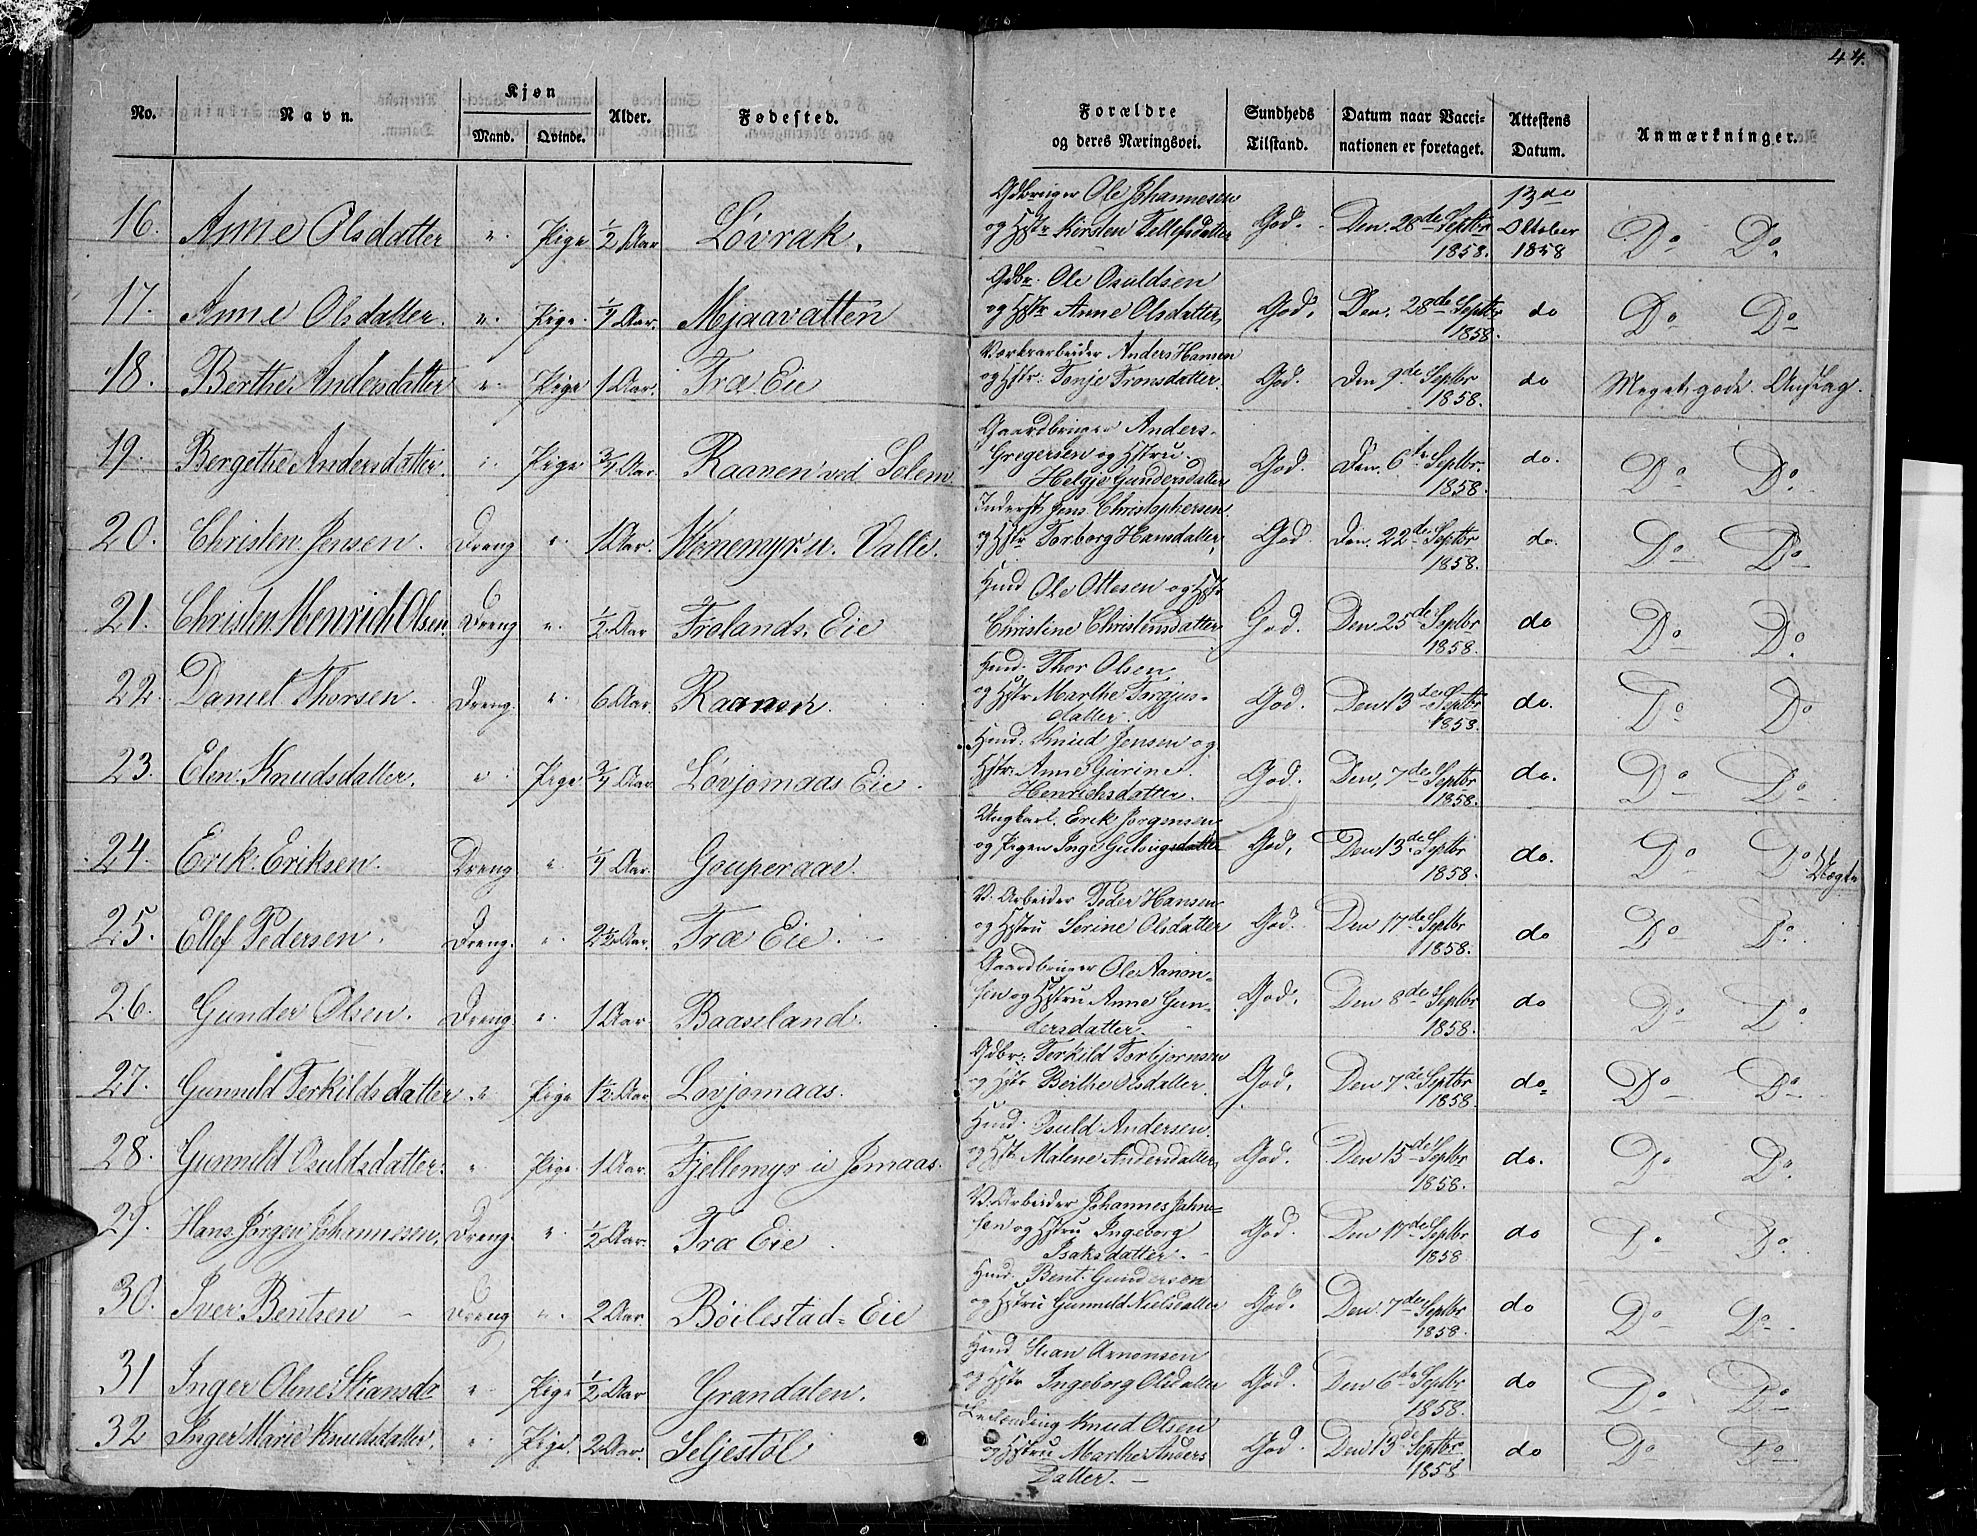 44.
No. Navn. Kjøn Mand. Qvinde. Alder. Fødested. Forældre og deres Næringsvei. Sundheds Tilstand. Datum naar Vaccinationen er foretaget. Attestens Datum. Anmærkninger.
16. Anne Olsdatter " Pige 1/2 Aar Løvrak. Gdbruger Ole Johannesen
og Hstr Kirsten Tellefsdatter God. Den 28de Septbr 1858. 13de Oktober 1858 Do Do
17. Anne Olsdatter. " Pige 1/4 Aar. Mjaavatten Gdbr. Ole Osuldsen
og Hstr Anne Olsdatter God. Den 28de Septbr 1858. do Do Do
18. Berthe Andersdatter " Pige 1 Aar. Træ Eie Værksarbeider Anders Hansen
og Hstr: Tonje Tronsdatter. God. Den 9de Septbr 1858. do Meget gode Anslag.
19. Bergethe Andersdatter. " Pige 3/4 Aar. Raanen ved Selem Gaardbruger Anders
Gregersen og Hstru
Helgje Gundersdatter God. Den 6te Septbr. 1858. do. Do Do
20. Christen Jensen. Dreng " 1 Aar. Kvenemyr u. Valle. Inderst Jens Christophersen
og Hstr Torborg Hansdatter, God Den 22de Septbr 1858. do. Do Do
21. Christen Henrich Olsen. Dreng " 1/2 Aar Frolands Eie Hmd Ole Ottesen og Hstr
Christine Christensdatter God. Den 25de Septbr 1858. do Do Do
22. Daniel Thorsen. Dreng. " 6 Aar. Raanen. Hmd. Thor Olsen
og Hstr Marthe Torgjus-
datter. God. Den 13de Septbr 1858. do. Do Do
23. Elen Knudsdatter. " Pige 3/4 Aar Løvjomaas Eie. Hmd: Knud Jensen og
Hstr: Anne Gurine
Henrichsdatter. God. Den 7de Septbr 1858. do. Do Do
24. Erik Eriksen. Dreng " 1/4 Aar. Gouperaas. Ungkarl. Erik Jørgensen
og Pigen Inge Gulvigsdatter God, Den 13de Septbr 1858. do. Do Do Uægte
25. Ellef Pedersen. Dreng. " 2 1/2 Aar. Træ Eie. V. Arbeider Peder Hansen
og Hstru Serine Olsdatter God. Den 17de Septbr 1858. do Do Do
26. Gunder Olsen. Dreng. " 1 Aar. Baaseland. Gaardbruger Ole Aanon-
sen og Hstru Anne Gun-
dersdatter. God. Den 8de Septbr 1858. do Do Do
27. Gunnuld Terkildsdatter " Pige 1 1/2 Aar. Lovjomaas. Gdbr: Terkild Torbjørnsen
og Hstr Berthe Olsdatter. God. Den 7de Septbr 1858. do Do Do
28. Gunnuld Osuldsdatter. " Pige 1 Aar. Fjellemyr u Jomaas. Hmd. Osuld Andersen.
og Hstr Malene Andersdatter God. Den 15de Septbr 1858. do. Do Do
29. Hans Jørgen Johannesen. Dreng. " 1/2 Aar. Træ Eie. V. Arbeider Johannes Jahn-
sen og Hstru Ingeborg
Isaksdatter. God. Den 17de Septbr 1858 do Do Do
30. Iver Bentsen Dreng " 2 Aar Bøilestad Eie Hmd. Bent Gundersen
og Hstru Gunnuld Nielsdatter God. Den 7de Septbr 1858. do Do Do
31 Inger Oline Stiansdr " Pige 1/2 Aar Grandalen. Hmd Stian Arnonsen
og Hstr Ingeborg Olsdatter God. Den 6te Septbr 1858. do Do Do
32 Inger Marie Knudsdatter. " Pige. 2 Aar. Seljestøl Leilending Knud Olsen
og Hstru Marthe Anders
Datter. God. Den 13de Septbr. 1858 do Do Do